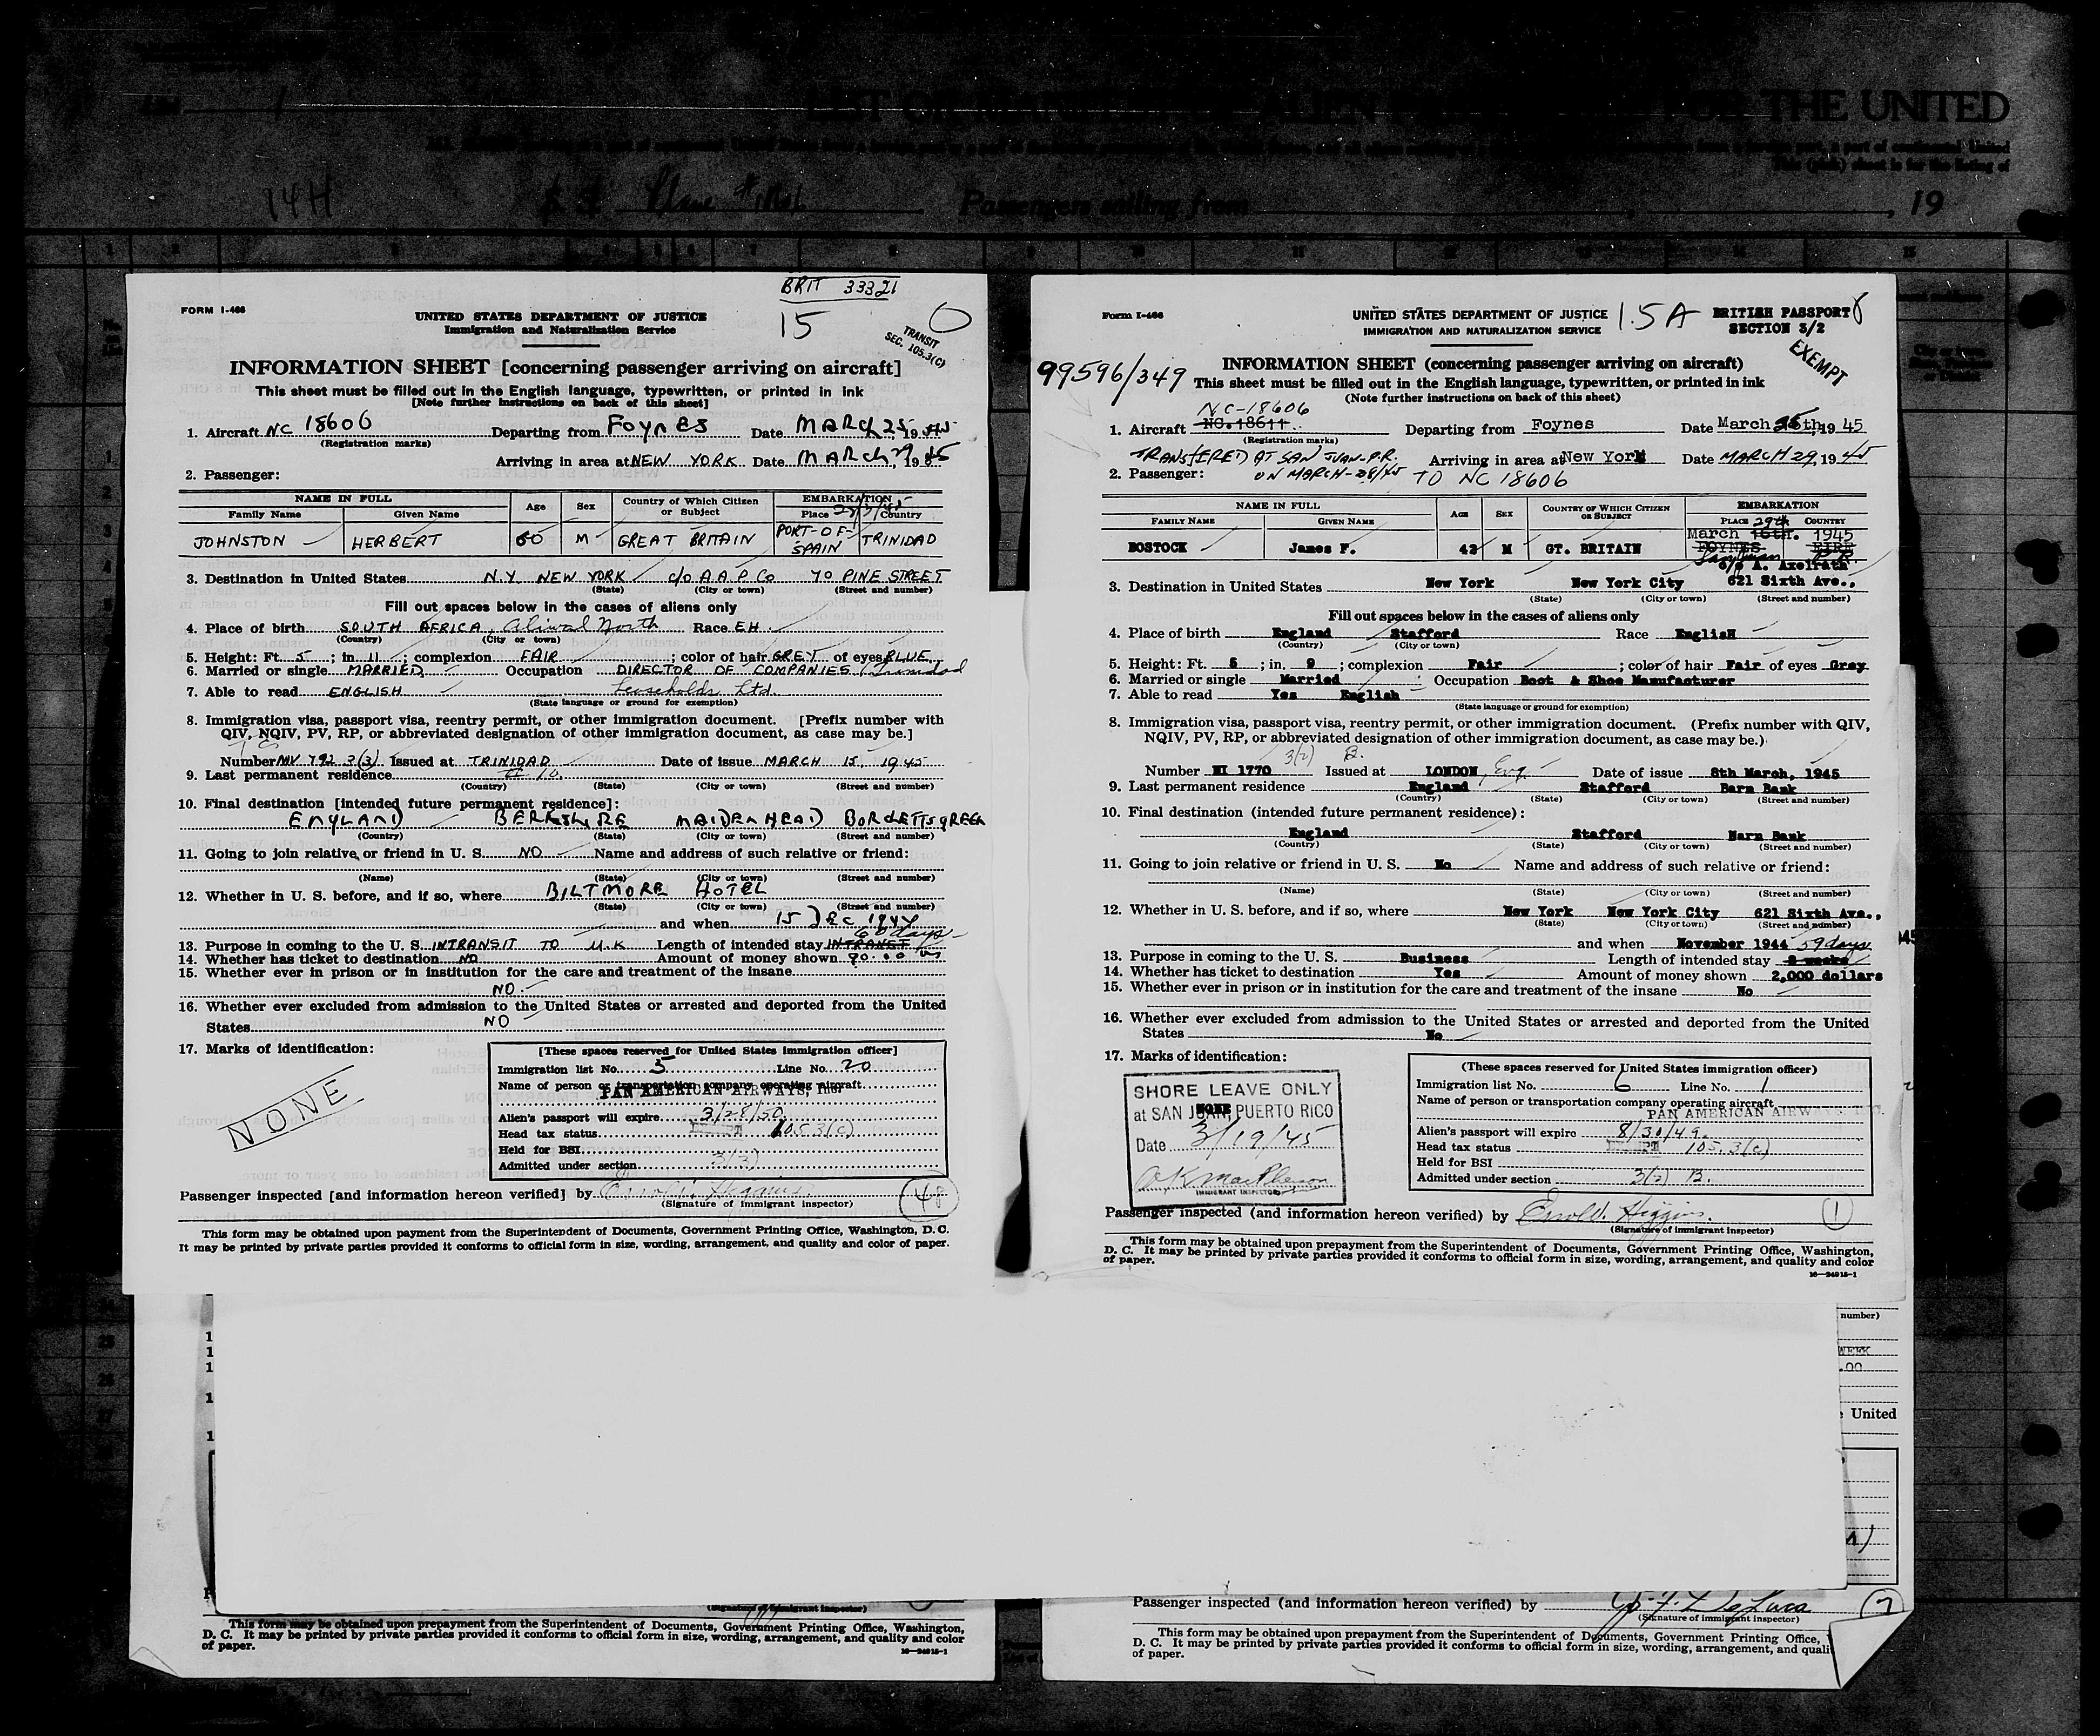 LIST OR
ALIEN
FOR THE UNITED
14H
Passengers sailing from
, 19
BRIT 33321
FORM I-466
UNITED STATES DEPARTMENT OF JUSTICE
Immigration and Naturalization Service
15
TRANSIT
SEC. 105.3(C)
INFORMATION SHEET [concerning passenger arriving on aircraft]
This sheet must be filled out in the English language, typewritten, or printed in ink
[Note further instructions on back of this sheet]
1. Aircraft NC 18606 Departing from FOYNES Date MARCH 25 19 45
(Registration marks)
Arriving in area at NEW YORK Date MARCH 29 19 45
2. Passenger:
NAME IN FULL Age Sex Country of Which Citizen or Subject EMBARKATION
Family Name Given Name Place Country
JOHNSTON HERBERT 60 M GREAT BRITAIN PORT-OF-SPAIN TRINIDAD
3. Destination in United States N.Y. NEW YORK c/o A.A.P. Co 70 PINE STREET
(State) (City or town) (Street and number)
Fill out spaces below in the cases of aliens only
4. Place of birth SOUTH AFRICA, Aliwal North Race EH
(Country) (City or town)
5. Height: Ft. 5 ; in. 11 ; complexion FAIR ; color of hair GREY of eyes BLUE
6. Married or single MARRIED Occupation DIRECTOR OF COMPANIES / Trinidad
7. Able to read ENGLISH Leaseholds Ltd.
(State language or ground for exemption)
8. Immigration visa, passport visa, reentry permit, or other immigration document. [Prefix number with
QIV, NQIV, PV, RP, or abbreviated designation of other immigration document, as case may be.]
Number MV 792 3(3) Issued at TRINIDAD Date of issue MARCH 15, 1945
9. Last permanent residence
(Country) (State) (City or town) (Street and number)
10. Final destination [intended future permanent residence]:
ENGLAND BERKSHIRE MAIDENHEAD BORLETTS GREEN
(Country) (State) (City or town) (Street and number)
11. Going to join relative or friend in U. S. NO Name and address of such relative or friend:
(Name) (State) (City or town) (Street and number)
12. Whether in U. S. before, and if so, where BILTMORE HOTEL
(State) (City or town) (Street and number)
and when 15 DEC 1944
60 days
13. Purpose in coming to the U. S. INTRANSIT TO U.K Length of intended stay INTRANST
14. Whether has ticket to destination NO Amount of money shown 90.00
15. Whether ever in prison or in institution for the care and treatment of the insane
NO.
16. Whether ever excluded from admission to the United States or arrested and deported from the United
States NO
17. Marks of identification:
NONE
[These spaces reserved for United States immigration officer]
Immigration list No. 5 Line No. 20
Name of person or transportation company operating aircraft
PAN AMERICAN AIRWAYS, INC.
Alien's passport will expire 3/28/50
Head tax status EXEMPT 105.3(c)
Held for BSI
Admitted under section 3(3)
Passenger inspected [and information hereon verified] by Errol W. Higgins
(Signature of immigrant inspector)
48
This form may be obtained upon payment from the Superintendent of Documents, Government Printing Office, Washington, D. C.
It may be printed by private parties provided it conforms to official form in size, wording, arrangement, and quality and color of paper.
Form I-466
UNITED STATES DEPARTMENT OF JUSTICE
IMMIGRATION AND NATURALIZATION SERVICE
1.5A
BRITISH PASSPORT
SECTION 3/2
EXEMPT
99596/349
INFORMATION SHEET (concerning passenger arriving on aircraft)
This sheet must be filled out in the English language, typewritten, or printed in ink
(Note further instructions on back of this sheet)
NC-18606
1. Aircraft NC.18611 Departing from Foynes Date March 15th, 19 45
(Registration marks)
TRANSFERED AT SAN JUAN-P.R. Arriving in area at New York Date MARCH 29, 19 45
2. Passenger: ON MARCH-28/45 TO NC 18606
NAME IN FULL AGE SEX COUNTRY OF WHICH CITIZEN OR SUBJECT EMBARKATION
FAMILY NAME GIVEN NAME PLACE COUNTRY
29th
March 16th. 1945
BOSTOCK James F. 43 M GT. BRITAIN FOYNES EIRE
San Juan P.R.
c/o A. Axelrath
3. Destination in United States New York New York City 621 Sixth Ave.,
(State) (City or town) (Street and number)
Fill out spaces below in the cases of aliens only
4. Place of birth England Stafford Race English
(Country) (City or town)
5. Height: Ft. 5 ; in. 9 ; complexion Fair ; color of hair Fair of eyes Grey
6. Married or single Married Occupation Boot & Shoe Manufacturer
7. Able to read Yes English
(State language or ground for exemption)
8. Immigration visa, passport visa, reentry permit, or other immigration document. (Prefix number with QIV,
NQIV, PV, RP, or abbreviated designation of other immigration document, as case may be.)
3(2) B.
Number NI 1770 Issued at LONDON, Eng. Date of issue 8th March, 1945
9. Last permanent residence England Stafford Barn Bank
(Country) (State) (City or town) (Street and number)
10. Final destination (intended future permanent residence):
England Stafford Barn Bank
(Country) (State) (City or town) (Street and number)
11. Going to join relative or friend in U. S. No Name and address of such relative or friend:
(Name) (State) (City or town) (Street and number)
12. Whether in U. S. before, and if so, where New York New York City 621 Sixth Ave.,
(State) (City or town) (Street and number)
and when November 1944 59 days
13. Purpose in coming to the U. S. Business Length of intended stay 8 weeks
14. Whether has ticket to destination Yes Amount of money shown 2,000 dollars
15. Whether ever in prison or in institution for the care and treatment of the insane No
16. Whether ever excluded from admission to the United States or arrested and deported from the United
States No
17. Marks of identification:
NONE
SHORE LEAVE ONLY
at SAN JUAN, PUERTO RICO
Date 3/19/45
OK MacPherson
IMMIGRANT INSPECTOR
(These spaces reserved for United States immigration officer)
Immigration list No. 6 Line No. 1
Name of person or transportation company operating aircraft
PAN AMERICAN AIRWAYS, INC.
Alien's passport will expire 8/30/49
Head tax status EXEMPT 105.3(c)
Held for BSI
Admitted under section 3(2) B.
Passenger inspected (and information hereon verified) by Errol W. Higgins.
(Signature of immigrant inspector)
1
This form may be obtained upon prepayment from the Superintendent of Documents, Government Printing Office, Washington,
D. C. It may be printed by private parties provided it conforms to official form in size, wording, arrangement, and quality and color
of paper.
16—24915-1
number)
WEEK
.00
United
(Signature of immigrant inspector)
This form may be obtained upon prepayment from the Superintendent of Documents, Government Printing Office, Washington,
D. C. It may be printed by private parties provided it conforms to official form in size, wording, arrangement, and quality and color
of paper.
16—24915-1
Passenger inspected (and information hereon verified) by J. F. DeLuca
(Signature of immigrant inspector)
7
This form may be obtained upon prepayment from the Superintendent of Documents, Government Printing Office,
D. C. It may be printed by private parties provided it conforms to official form in size, wording, arrangement, and quali
of paper.